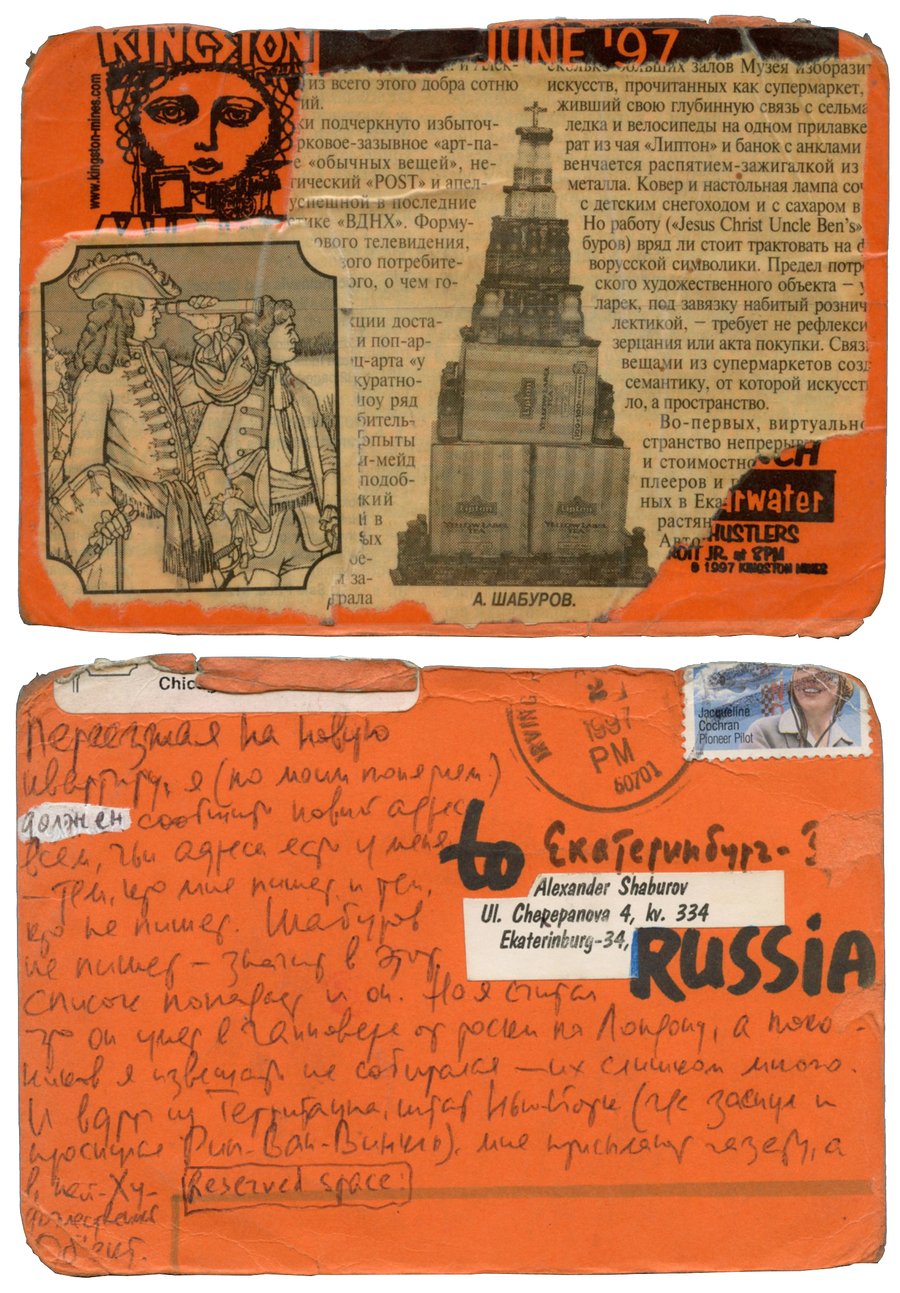 KINGSTON
JUNE '97
www.kingston-mines.com
из всего этого добра сотню
ки подчеркнуто избыточ-
рковое-зазывное «арт-па-
е «обычных вещей», не-
гический «POST» и апел-
успешной в последние
тике «ВДНХ». Форму-
ового телевидения,
вого потребите-
ого, о чем го-
кции доста-
и поп-ар-
ц-арта «у
куратно-
ноу ряд
битель-
опыты
и-мейд
подоб-
кий
й в
ых
ое-
м за-
грала
А. ШАБУРОВ.
сколько больших залов Музея изобразит
искусств, прочитанных как супермаркет,
живший свою глубинную связь с сельма
ледка и велосипеды на одном прилавке
рат из чая «Липтон» и банок с анклами
венчается распятием-зажигалкой из
металла. Ковер и настольная лампа соч
с детским снегоходом и с сахаром в
Но работу («Jesus Christ Uncle Ben's»
буров) вряд ли стоит трактовать на ф
ворусской символики. Предел потр
ского художественного объекта – у
ларек, под завязку набитый рознич
лектикой, – требует не рефлекси
зерцания или акта покупки. Связ
вещами из супермаркетов созд
семантику, от которой искусст
ло, а пространство.
Во-первых, виртуальн
странство непрерыв
и стоимостно
плееров и
ных в Ека
растян
Авто
rwater
HUSTLERS
JR. at 8PM
© 1997 KINGSTON MINES
Lipton
YELLOW LABEL
TEA
Lipton
YELLOW LABEL
TEA
Lipton
Chica
IRVING
1997
PM
60701
Jacqueline
Cochran
Pioneer Pilot
Переезжая на новую
квартиру, я (по моим понятиям)
должен сообщить новый адрес
всем, чьи адреса есть у меня
– тем, кто мне пишет и тем,
кто не пишет. Шабуров
не пишет – значит в этот
список попадает и он. Но я считал
что он умер в Ганновере от тоски по Лондону, а покой-
ников я извещать не собирался – их слишком много.
И вдруг из Территауна, штат Нью-Йорк (где заснул и
проснулся Рип-Ван-Винкль), мне присылают газету, а
в ней – Ху-
дожественный
Объект.
Reserved space:
to Екатеринбург-3
Alexander Shaburov
Ul. Cherepanova 4, kv. 334
Ekaterinburg-34,
RUSSIA